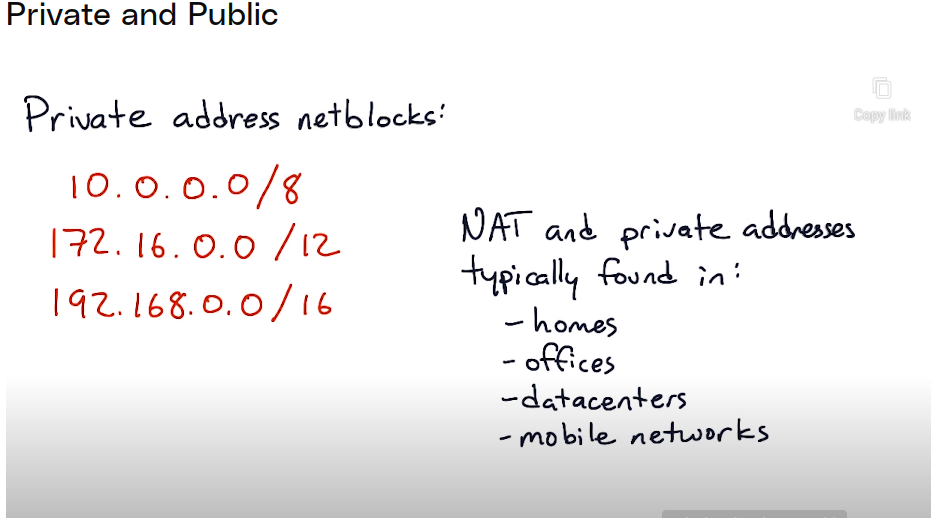 Private and Public
Copy link
Private address netblocks:
10.0.0.0/8
172.16.0.0/12
192.168.0.0/16
NAT and private addresses
typically found in:
- homes
- offices
- datacenters
- mobile networks